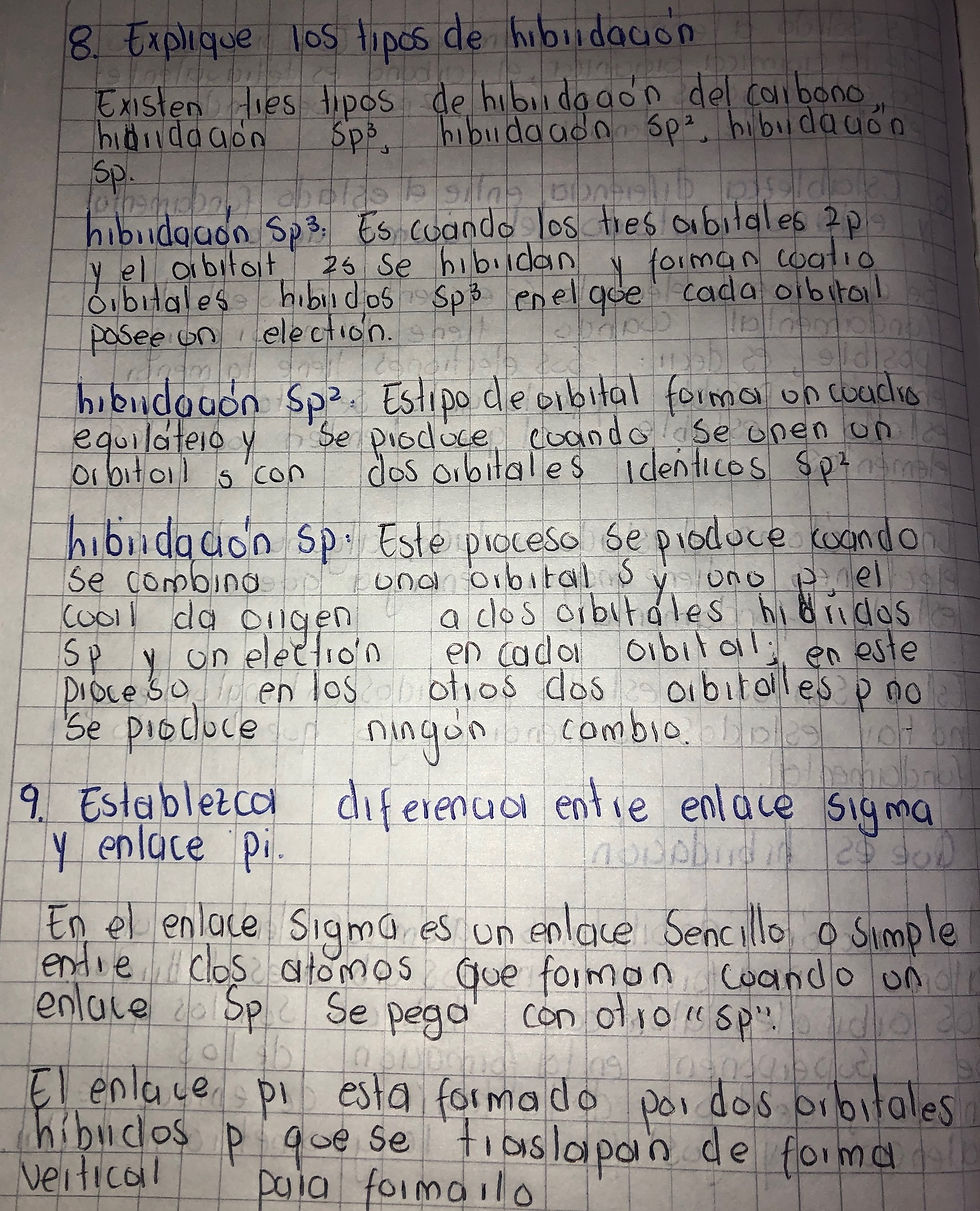 8. Explique los tipos de hibridación
Existen tres tipos de hibridación del carbono,,
hibridación Sp³, hibridación Sp², hibridación
Sp.
hibridación Sp³: Es cuando los tres orbitales 2p
y el orbitalt 2s se hibridan y forman cuatro
orbitales hibridos Sp³ en el que cada orbital
posee un electrón.
hibridación Sp²: Es tipo de orbital forma un cuadro
equilátero y se produce cuando se unen un
orbital s con dos orbitales identicos Sp²
hibridación Sp: Este proceso se produce cuando
se combina una orbital S y uno p, el
cual da origen a dos orbitales hibridos
Sp y un electrón en cada orbital; en este
proceso en los otros dos orbitales p no
se produce ningún cambio.
9. Establezca diferencia entre enlace sigma
y enlace pi.
En el enlace Sigma es un enlace Sencillo o Simple
entre dos atomos que forman cuando un
enlace Sp Se pega con otro "sp".
El enlace pi esta formado por dos orbitales
hibridos p que se traslapan de forma
vertical para formarlo